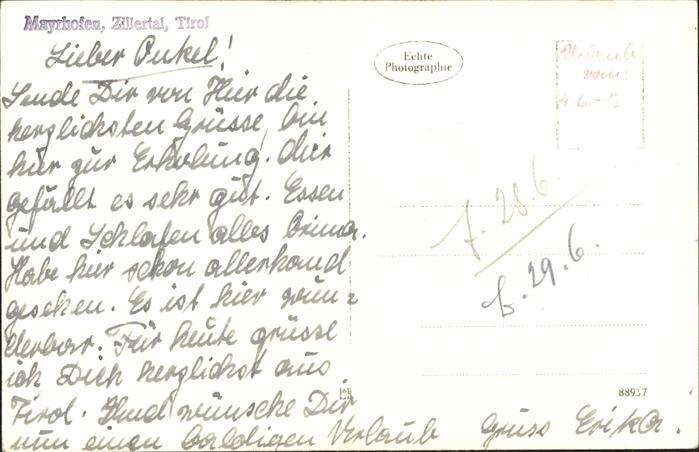 Mayrhofen, Zillertal, Tirol
Lieber Onkel!
Sende Dir von Hier die
herzlichsten Grüsse, bin
hier zur Erholung. Mir
gefällt es sehr gut. Essen
und Schlafen alles Prima.
Habe hier schon allerhand
gesehen. Es ist hier wun=
derbar. Für heute grüsse
ich Dich herzlichst aus
Tirol. Und wünsche Dir
nun einen baldigen Urlaub Gruss Erika.
Echte
Photographie
Urlaub
vom:
28.6.
29.6.
88937